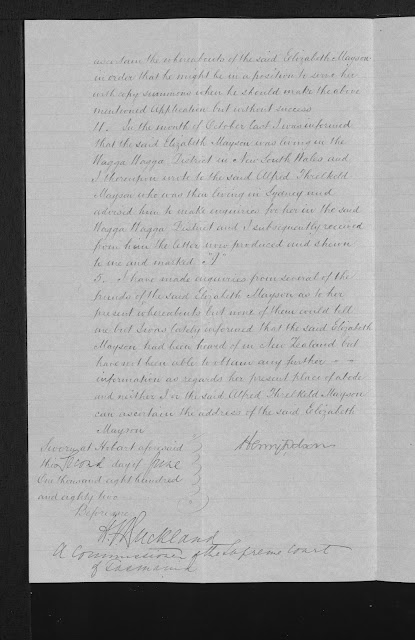 ascertain the whereabouts of the said Elizabeth Mayson
in order that he might be in a position to serve her
with copy summons when he should make the above
mentioned application but without success
4. In the month of October last I was informed
that the said Elizabeth Mayson was living in the
Wagga Wagga District in New South Wales and
I thereupon wrote to the said Alfred Threlkeld
Mayson who was then living in Sydney and
advised him to make enquiries for her in the said
Wagga Wagga District and I subsequently received
from him the letter now produced and shewn
to me and marked "A"
5. I have made enquiries from several of the
friends of the said Elizabeth Mayson as to her
present whereabouts but none of them could tell
me but I was lately informed that the said Elizabeth
Mayson had been heard of in New Zealand but
have not been able to obtain any further - -
information as regards her present place of abode
and neither I or the said Alfred Threlkeld Mayson
can ascertain the address of the said Elizabeth
Mayson
Sworn at Hobart aforesaid
this Second day of June
One thousand eight hundred
and eighty five
Henry Dobson
Before me
Buckland
A Commissioner of the Supreme Court
of Tasmania